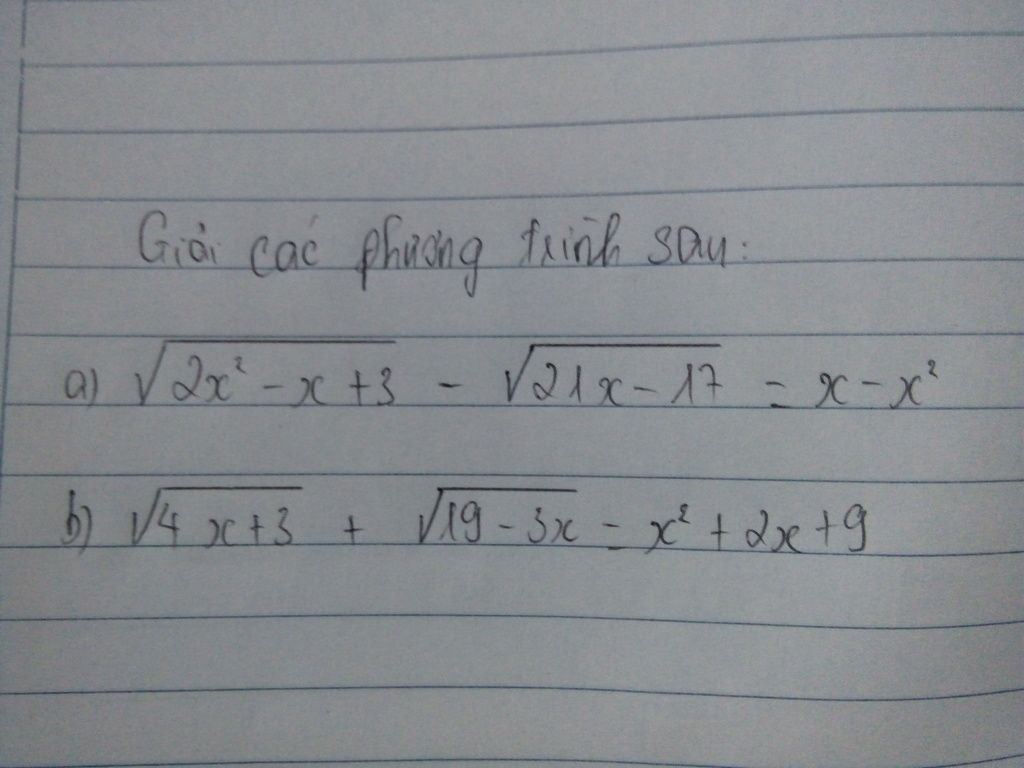 Giải các phương trình sau:
a) √(2x² - x + 3) - √(21x - 17) = x - x²
b) √(4x + 3) + √(19 - 3x) = x² + 2x + 9